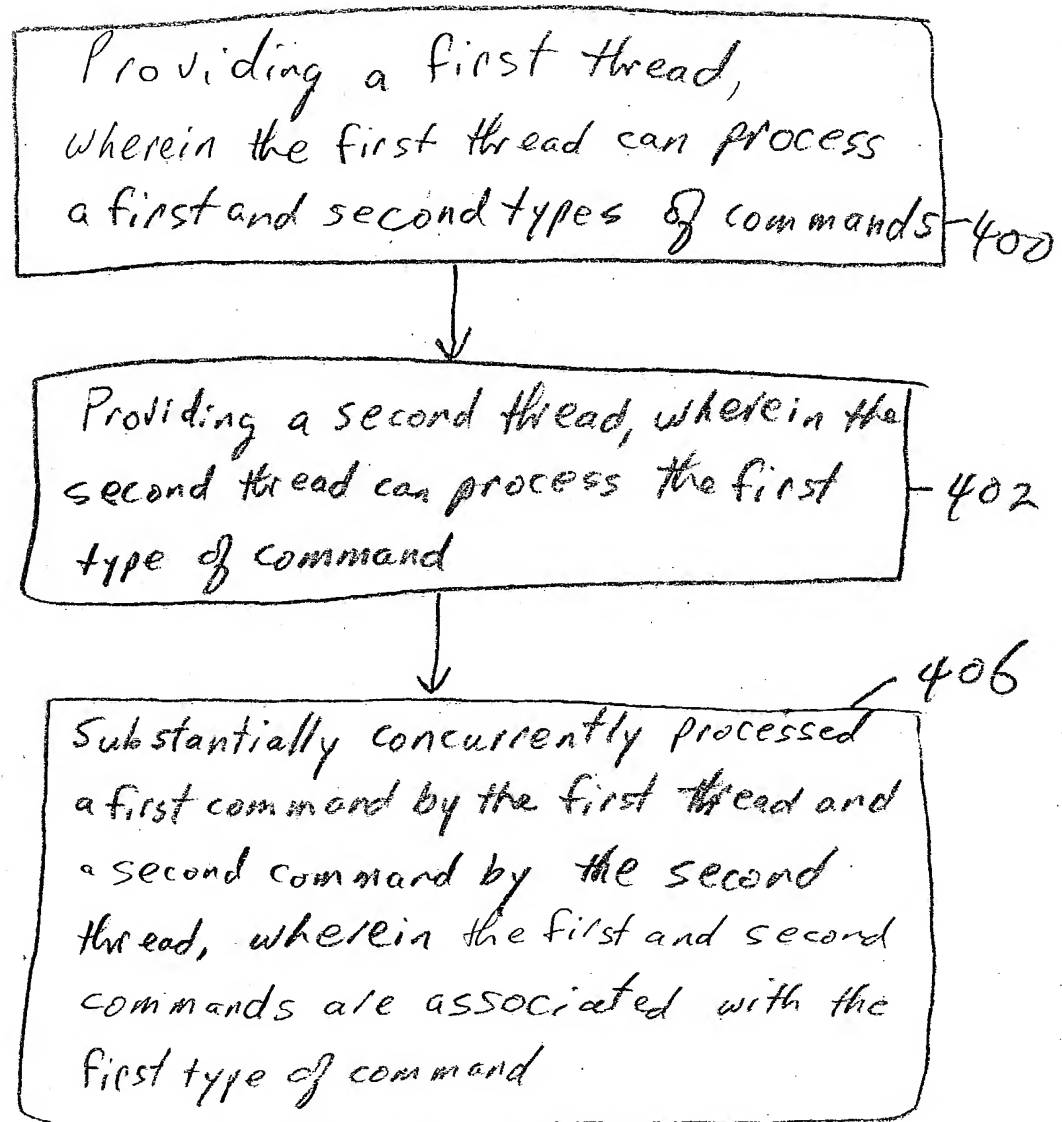 Providing a first thread,
wherein the first thread can process
a first and second types of commands 400
Providing a second thread, wherein the
second thread can process the first
type of command
402
406
Substantially concurrently processed
a first command by the first thread and
a second command by the second
thread, wherein the first and second
commands are associated with the
first type of command